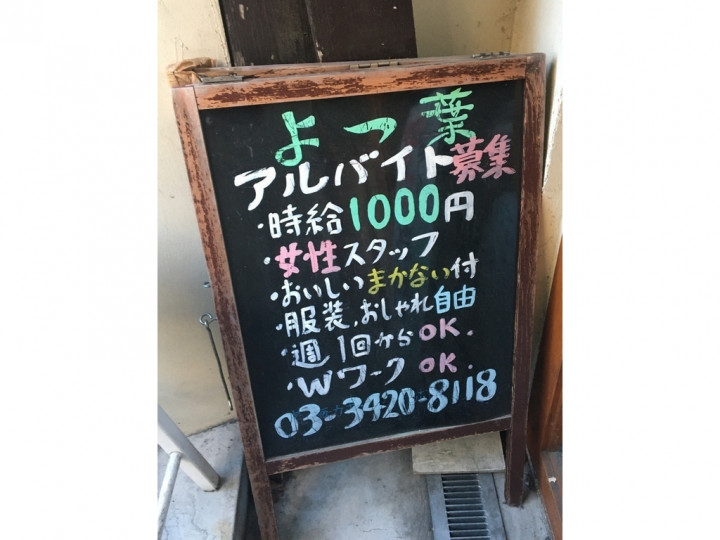 よつ葉
アルバイト募集
・時給1000円
・女性スタッフ
・おいしいまかない付
・服装、おしゃれ自由
・週1回からOK.
・WワークOK.
03-3420-8118